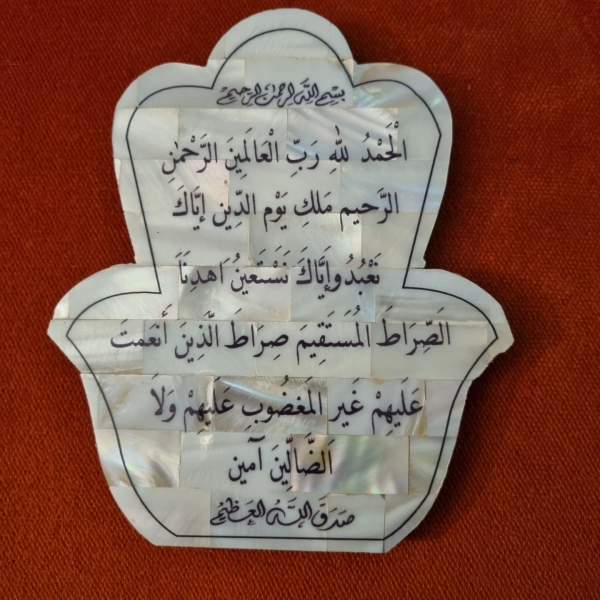 بسم الله الرحمن الرحيم
الْحَمْدُ للهِ رَبِّ الْعَالَمِينَ الرَّحْمٰنِ
الرَّحيم مَلكِ يَوْم الدِّينِ إيَّاكَ
نَعْبُدُ وإِيَّاكَ نَسْتَعينُ اهدِنَا
الصِّرَاطَ المُستَقِيمَ صِرَاطَ الَّذِينَ أَنعَمتَ
عَلَيهِمْ غَيرِ المَغضُوبِ عَلَيهِمْ وَلاَ
الضَّالِّينَ آمين
صَدَقَ اللهُ العَظيمُ